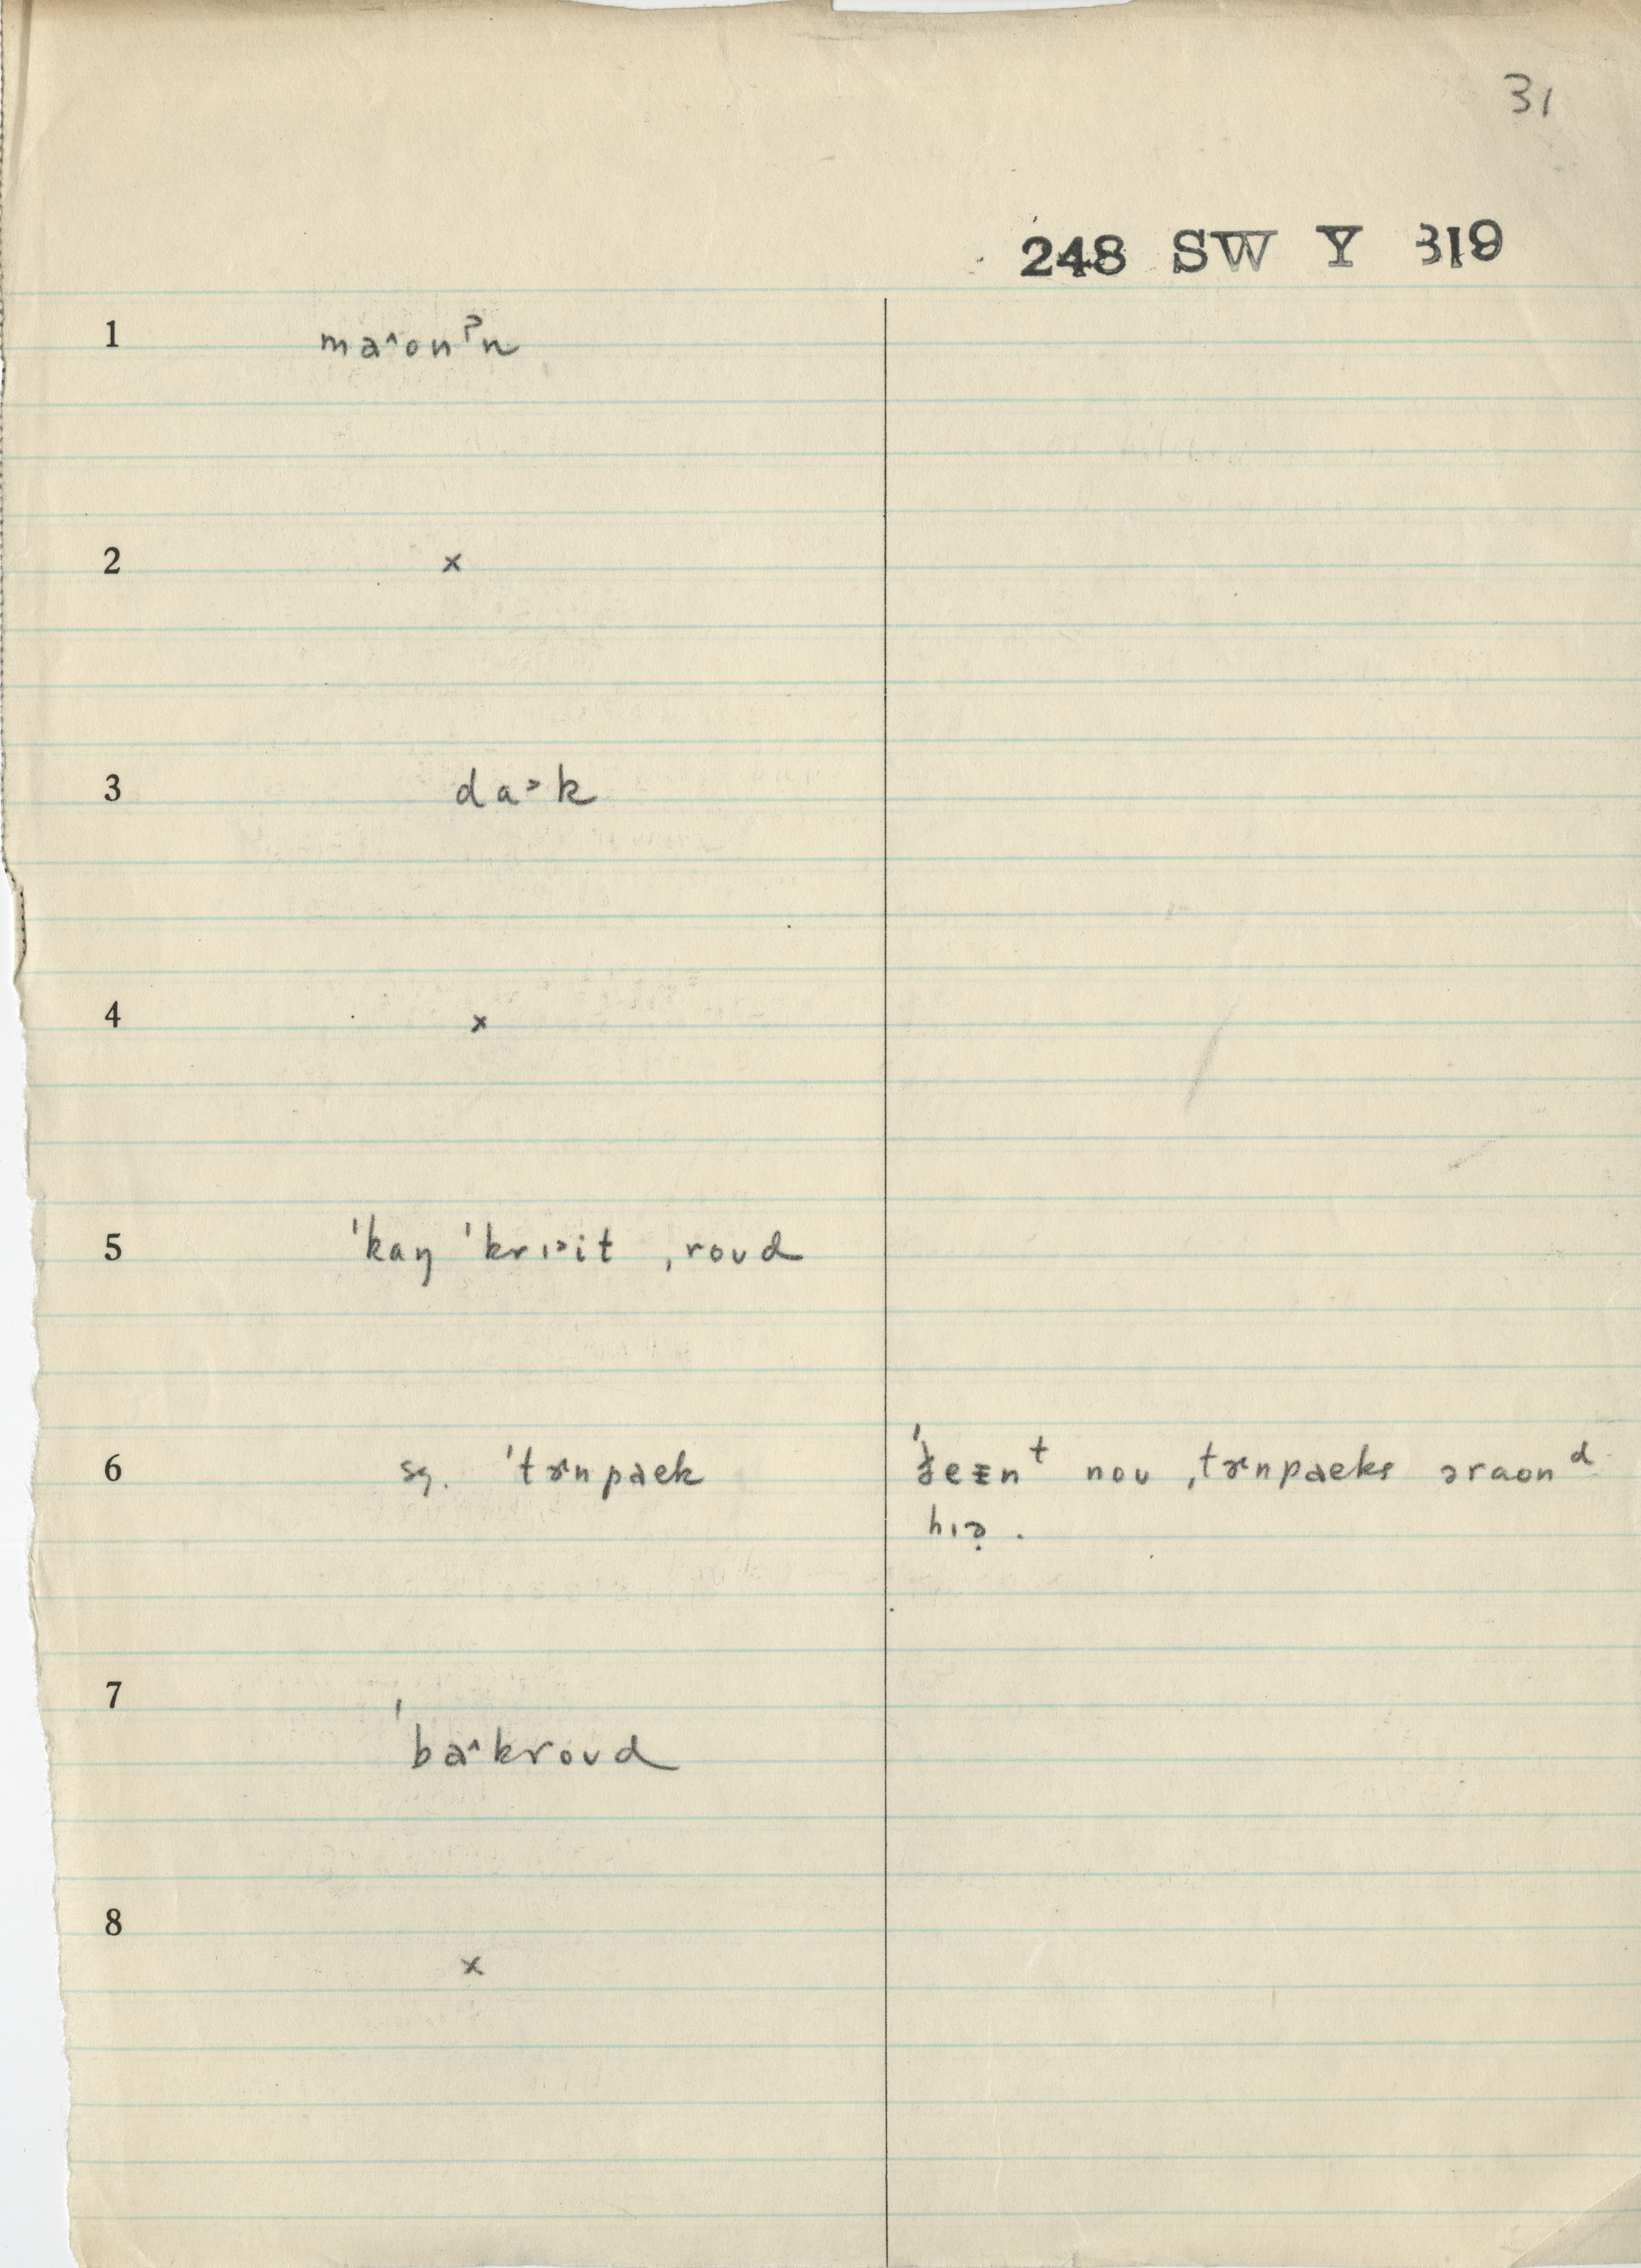 31
248 SW Y 319
1 ma˄onˀn
2 x
3 da˃k
4 x
5 ˈkaŋ ˈkrɪ˃it ˌroʊd
6 sg. ˈtɚnpaek
ˈðeɪzn ᵗ noʊ ˌtɚnpaeks əraonᵈ
hɪə̣.
7
ˈba˄kroʊd
8
x